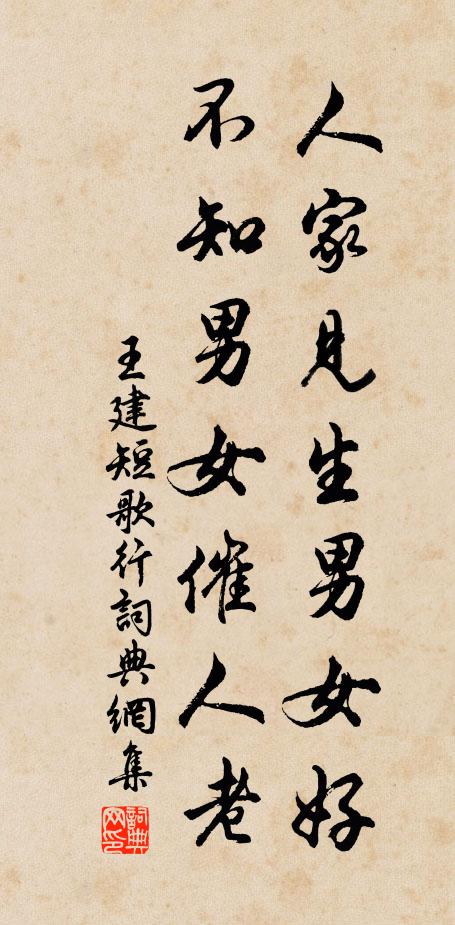 人家見生男女好
不知男女催人老
王建短歌行詞典網集
詞典網印